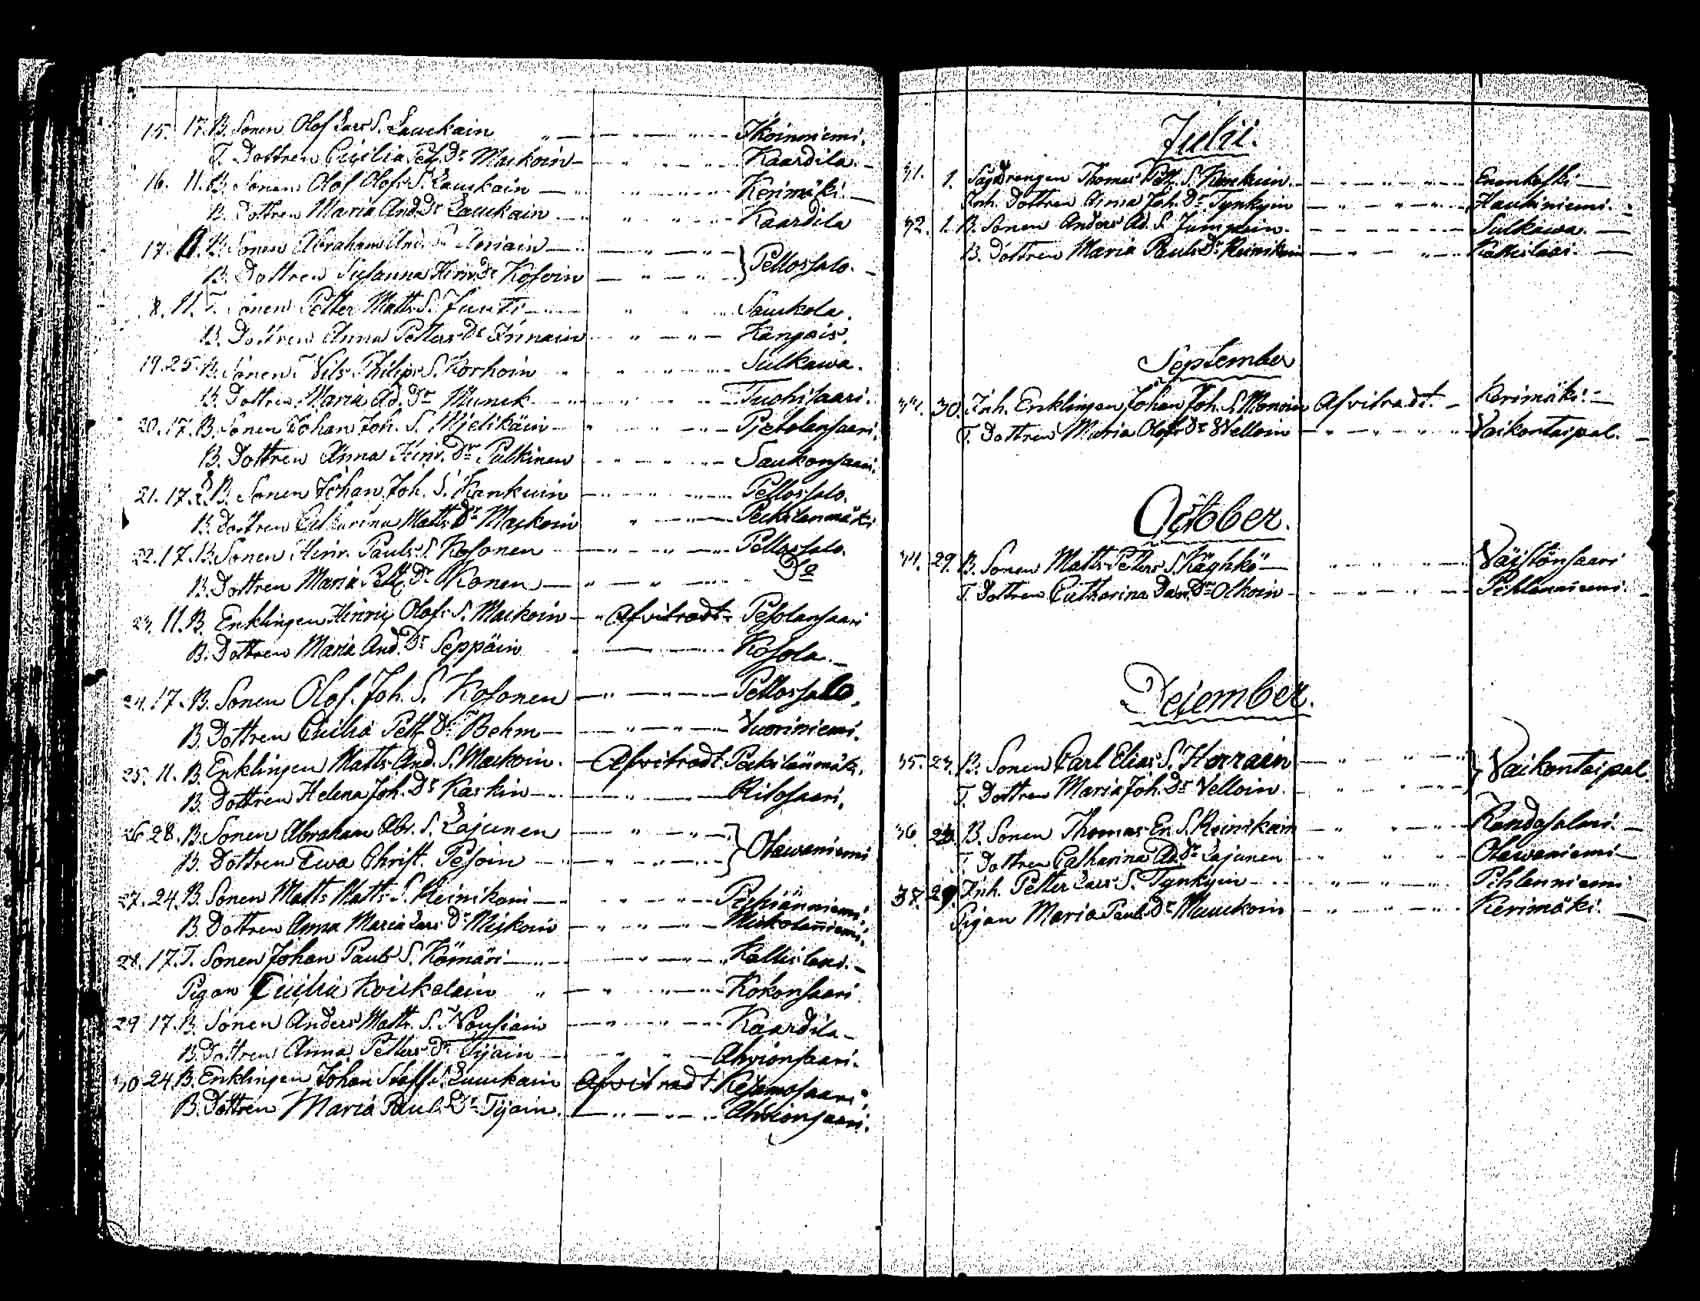 15. 17. B. Sonen Olof Lars S. Lauckain Ikoinniemi.
T. Dottren Cicilia Pet. Dr Maukoin Kaardila.
16. 11. B. Sonen Olof Olofs S. Lauckain Kerimäki
B. Dottren Maria And. Dr Lauckain Kaardila
17. 11. B. Sonen Abraham And. S.
B. Dottren Susanna Hinr. Dr Kosoin Pellossalo.
8. 11. T. Sonen Petter Matts S. Juuti Saukola.
B. Dottren Anna Petters Dr Kangais.
19. 25. B. Sonen Nils Philip S. Korhoin Sulkawa.
B. Dottren Maria Ad. Dr Munck Tuohisaari.
20. 17. B. Sonen Johan Joh. S. Mjelikäin Pjetolansaari.
B. Dottren Anna Hinr. Dr Pulkinen Saukonsaari.
21. 17. B. Sonen Johan Joh. S. Kankuin Pellossalo.
B. Dottren Catharina Matts Dr Maukoin
22. 17. B. Sonen Hinr. Pauls S. Kosonen Pellossalo.
B. Dottren Maria Pett. Dr Ikonen Do
23. 11. B. Enklingen Hinric Olofs S. Maukoin Afvitradt Pesolansaari
B. Dottren Maria And. Dr Seppäin Kosola.
24. 17. B. Sonen Olof. Joh. S. Kosonen Pellossalo,
B. Dottren Cicilia Pett. Dr Behm Vuoriniemi.
25. 11. B. Enklingen Matts And. S. Maukoin. Afvitradt
B. Dottren Helena Joh. Dr Karkin Ritosaari,
26 28. B. Sonen Abraham Abr. S. Lajunen
B. Dottren Ewa Christ. Pesoin Otawaniemi
27. 24. B. Sonen Matts Matts S. Reinikain
B. Dottren Anna Maria Lars Dr Mickoin
28. 17. T. Sonen Johan Pauls S. Kämäri Kallislaxi.
Pigan Cicilia Koickelain Kokonsaari
29 17. B. Sonen Anders Matts. S. Nousiain Kaardila
B. Dottren Anna Petters Dr Tijain Ahvionsaari.
30 24. B. Enklingen Johan Staff. S. Lauckain Afvitradt
B. Dottren Maria Paul. Dr Tijain. Ahvionsaari.
Julii.
31. 1. Thomas Pett. S. Kankuin Enonkoski
Inh. Dottren Joh. Dr Tynkyin Hauhiniemi.
32. 1. B. Sonen Anders Ad. S. Sulkawa.
B. Dottren Maria Pauls Dr Reinikain
September
30. Inh. Enklingen Johan Joh. S. Afvitradt Kerimäki.
T. Dottren Maria Olofs Dr Velloin Vaikontaipal.
October.
34. 29. B. Sonen Matts Petters S. Käyhkö Väistönsaari
T. Dottren Catharina Dav. Dr Olkoin Pihlanniemi.
December.
35. 23. B. Sonen Carl Elias S. Herrain
T. Dottren Maria Joh. Dr Velloin. Vaikontaipal
36. B. Sonen Thomas Er. S. Reinikain Randasalmi.
T. Dottren Catharina Ad. Dr Lajunen Otawaniemi
38. 29. Inh. Petter Lars S. Tynkyin Pihlanniemi
Pigan Maria Paul. Dr Maukoin Kerimäki.